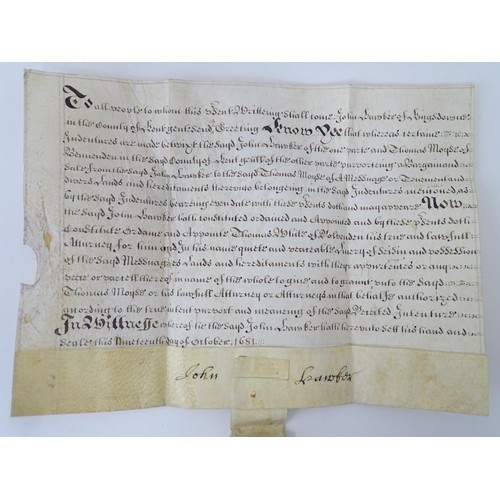 To all people to whom this psent Writteing shall come John Hawker of Kingsdowne
in the County of Kent gent send Greeting Know Yee that whereas certaine
Indentures are made betweene the said John Hawker of the one parte and Thomas Moyse of
Benenden in the said County of Kent of the other parte purporteing a Bargaine and
Sale from the said John Hawker to the said Thomas Moyse of a Messuage or Tenement and
divers Lands and hereditaments thereunto belongeing in the said Indentures menconed as
by the said Indentures beareing even date with these psents doth and may appeare Now
the said John Hawker hath constituted ordained and Appointed and by these psents doth
Constitute Ordaine and Appointe Thomas White of Rolvenden his true and lawfull
Attorney for him and in his name quiete and peaceable Livery of Seisin and possession
of the said Messuages Lands and hereditaments with their appurtences or any
peece or parcell thereof in name of the whole to give and to graunt unto the said
Thomas Moyse or his lawfull Attorney or Attorneys in that behalfe authorized
according to the true intent purport and meaneing of the said Recited Indenture
In Wittnesse whereof he the said John Hawker hath hereunto sett his hand and
seale this Nineteenth day of October 1681
John Hawker